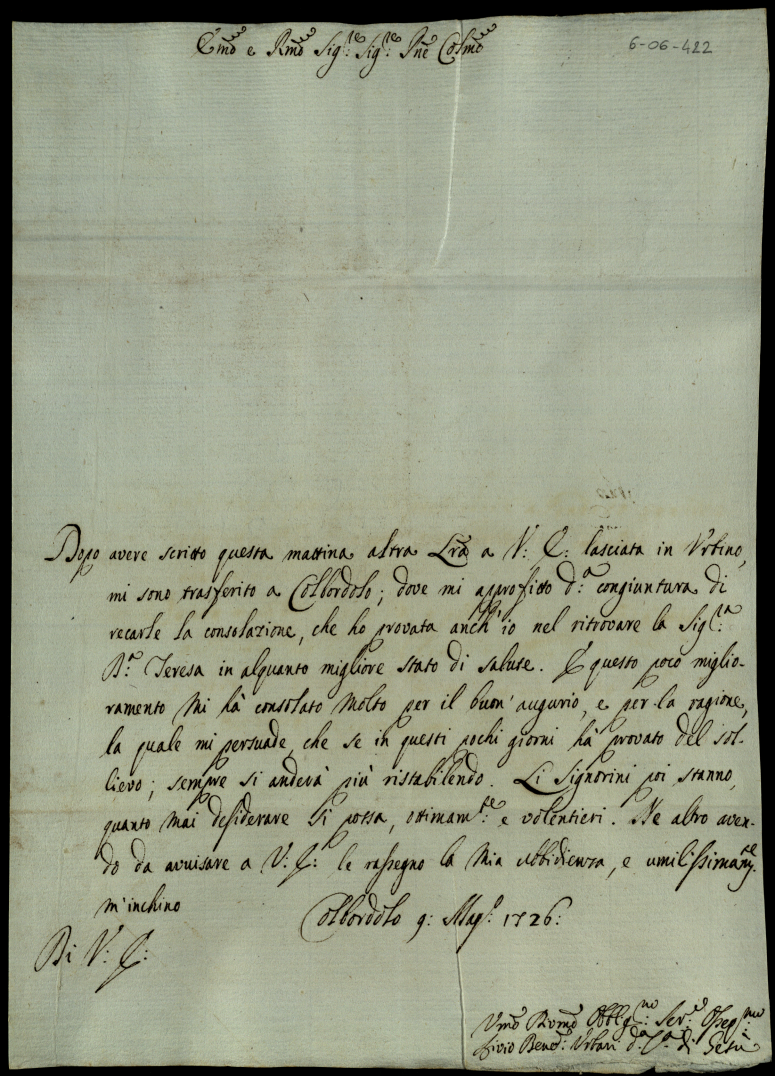 Emo e Rmo Sig:re Sig:re Pne Colmo
6-06-422
Dopo avere scritto questa mattina altra Lra a V: E: lasciata in Urbino,
mi sono trasferito a Colbordolo; dove mi approfitto d:a congiuntura di
recarle la consolazione, che ho provata anch'io nel ritrovare la Sig:ra
D:a Teresa in alquanto migliore stato di salute. E questo poco miglio-
ramento mi hà consolato molto per il buon'augurio, e per la ragione,
la quale mi persuade, che se in questi pochi giorni hà provato del sol-
lievo; sempre si anderà più ristabilendo. Li Signorini poi stanno,
quanto mai desiderare si possa, ottimam:te e volentieri. Ne altro aven-
do da avvisare a V: E: le rassegno la mia ubbidienza, e umilissimamte
m'inchino
Colbordolo 9: Mag:o 1726:
Di V: E:
Umo Devmo Obblig:mo Ser:e Osseq:mo
Livio Bened: Urbani d:a C:a di Gesù